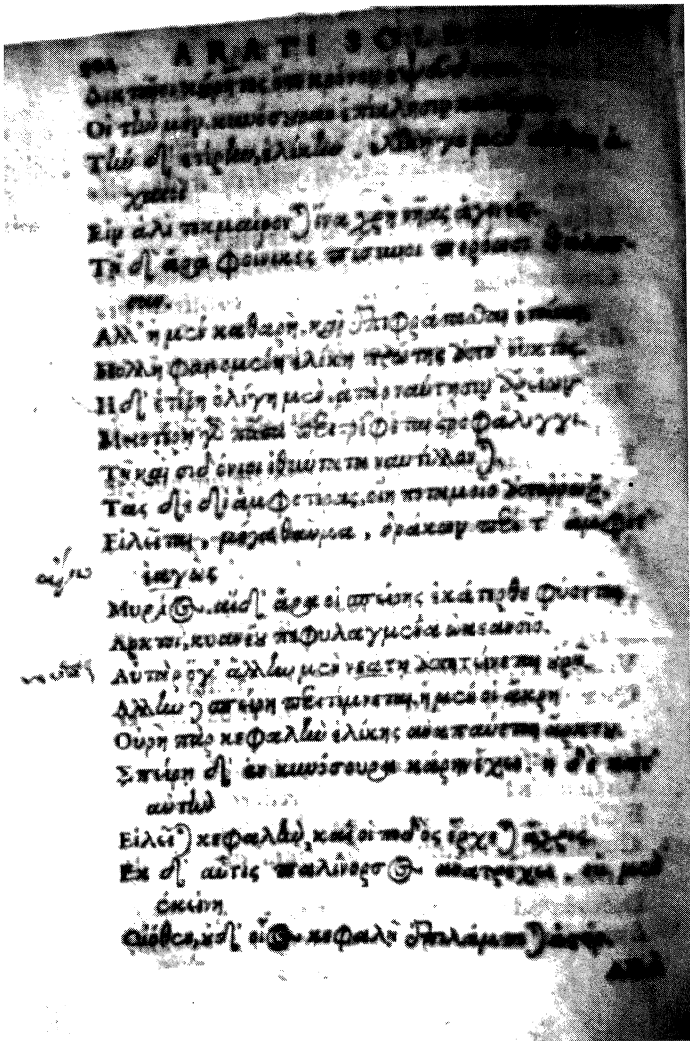 ARATI SOL
Δικταῖοι κούρητες ὅτε κρόνον
Οἱ τὴν μὲν κυνόσουραν ἐπίκλησιν
Τὴν δ' ἑτέρην ἑλίκην. ἑλίκη γε μὲν ἄνδρες ἀ-
χαιοὶ
Εἰν ἁλὶ τεκμαίρονται ἵνα χρὴ νῆας ἀγινεῖν.
Τῇ δ' ἄρα Φοίνικες πίσυνοι περόωσι θάλασ-
σαν.
Ἀλλ' ἡ μὲν καθαρὴ, καὶ ἐπιφράσσασθαι ἑτοίμη
Πολλὴ φαινομένη ἑλίκη πρώτης ἀπὸ νυκτός.
Ἡ δ' ἑτέρη ὀλίγη μὲν, ἀτὰρ ναύτῃσιν ἀρείων
Μειοτέρη γὰρ πᾶσα περιστρέφεται στροφάλιγγι.
Τῇ καὶ σιδόνιοι ἰθύντατα ναυτίλλονται.
Τὰς δὲ δι' ἀμφοτέρας, οἵη ποταμοῖο ἀπορρὼξ,
Εἰλεῖται, μέγα θαῦμα, δράκων περί τ' ἀμφί τ'
ἐαγὼς
Μυρίος. αἱ δ' ἄρα οἱ σπείρης ἑκάτερθε φύονται,
Ἄρκτοι, κυανέου πεφυλαγμέναι ὠκεανοῖο.
Αὐτὰρ ὅγ' ἄλλην μὲν νεάτη ἀποτείνεται οὐρῇ.
Ἄλλην δὲ σπείρη περιτέμνεται, ἡ μὲν οἱ ἄκρη
Οὐρὴ πὰρ κεφαλὴν ἑλίκης ἀποπαύεται ἄρκτου.
Σπείρη δ' ἐν κυνόσουρα κάρη ἔχει. ἡ δὲ κατ'
αὐτὴν
Εἰλεῖται κεφαλὴν, καὶ οἱ ποδὸς ἔρχεται ἄχρις.
Ἐκ δ' αὖτις παλίνορσος ἀνατρέχει. οὐ μὲν
ἐκείνη
Οἰόθεν, οὐδ' οἶος κεφαλῇ ἐπιλάμπεται ἀστήρ.